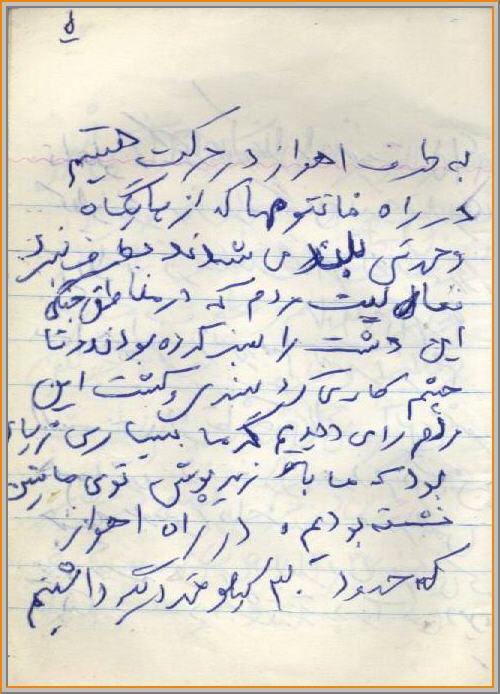 به طرف اهواز در حرکت هستیم
در راه فانتوم‌ها که از پایگاه
وحدتی بلند می شدند بطرف نبرد
فعالیت مردم که در مناطق جنگی
این دشت را سبز کرده بودند و تا
چشم کار می کرد سبزی و کشت این
مردم را می دیدیم گرما بسیاری زیاد
بود که ما با زیرپوش توی ماشین
نشسته بودیم، در راه اهواز
که حدود ۳۰ کیلومتر دیگر داشتیم